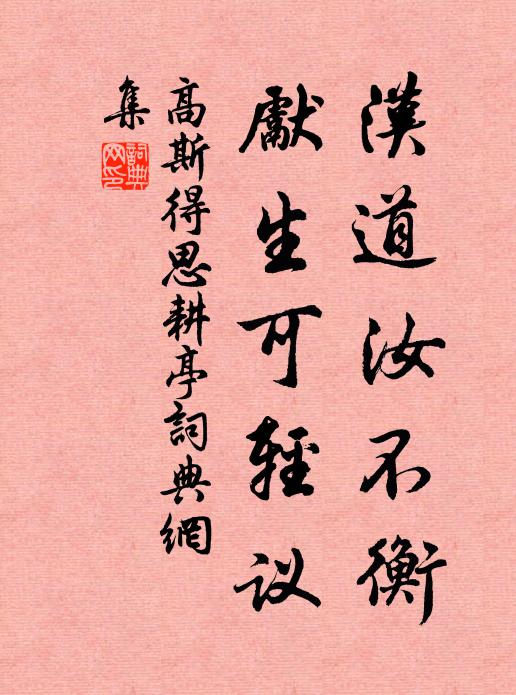 漢道汝不衡
獻生可輕议
高斯得思耕亭詞典網
集
詞典網印